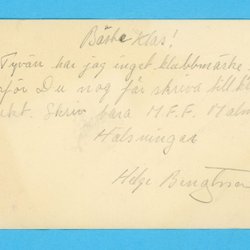 Bäste Klas!
Tyvärr har jag inget klubbmärke
för Du nog får skriva till kl
ekt. Skriv bara M.F.F. Malm
Hälsningar
Helge Bengtsson